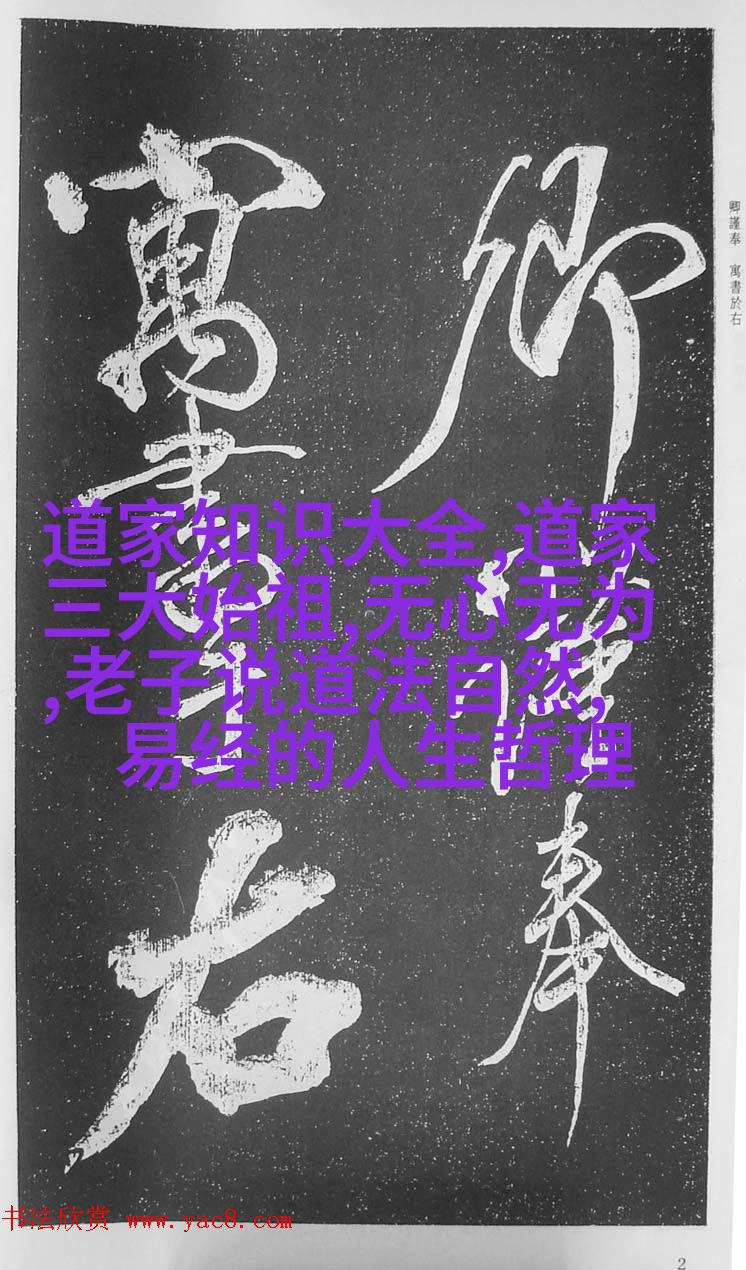 卿謹奉
寓書於右
卿謹奉 寓書於右
道家知识大全,道家
三大始祖,无心无为
,老子说道法自然,
易经的人生哲理
书法欣赏 www.yac8.com
2